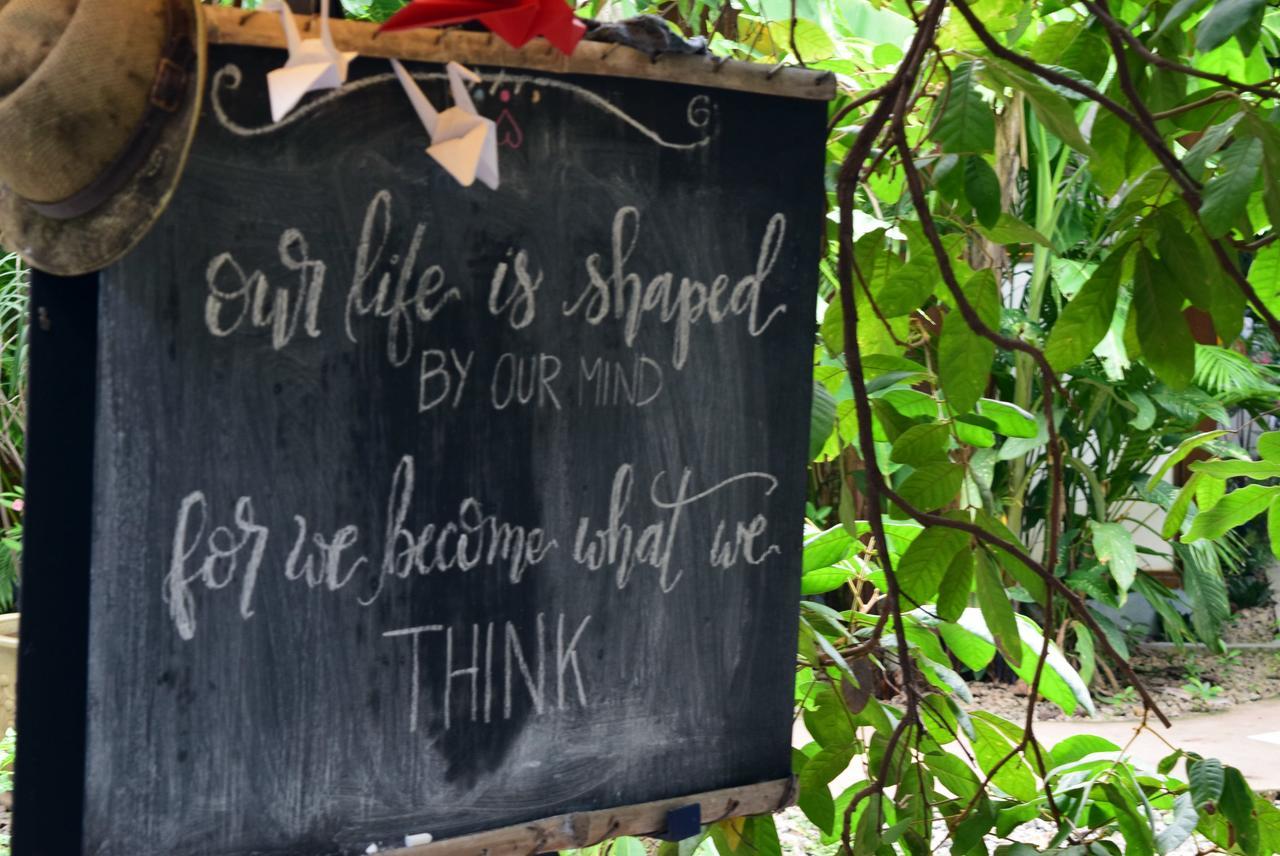 our life is shaped
BY OUR MIND
for we become what we
THINK